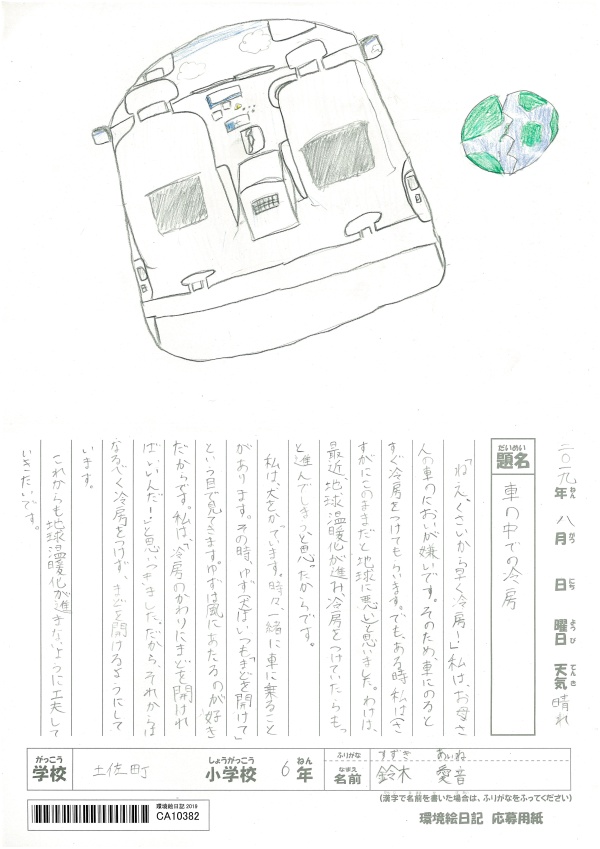 二〇一九年八月 日 曜日 天気 晴れ
ねん がつ にち ようび てんき
だいめい
題名 車の中での冷房
「ねえ、くさいから早く冷房ー！」私は、お母さ
んの車のにおいが嫌いです。そのため、車にのると
すぐ冷房をつけてもらいます。でも、ある時、私は「さ
すがにこのままだと地球に悪い」と思いました。わけは、
最近地球温暖化が進み冷房をつけていたらもっ
と進んでしまうと思ったからです。
私は、犬をかっています。時々、一緒に車に乗ること
があります。その時、ゆず（犬）はいつも「まどを開けて」
という目で見てきます。ゆずは風にあたるのが好き
だからです。私は、「冷房のかわりにまどを開けれ
ばいいんだー！」と思いつきました。だから、それからは
なるべく冷房をつけず、まどを開けるようにして
います。
これからも地球温暖化が進まないように工夫して
いきたいです。
がっこう
学校 土佐町
しょうがっこう ねん
小学校 6年
ふりがな すずき あいね
なまえ
名前 鈴木 愛音
（漢字で名前を書いた場合は、ふりがなをふってください）
環境絵日記 2019
CA10382
環境絵日記 応募用紙